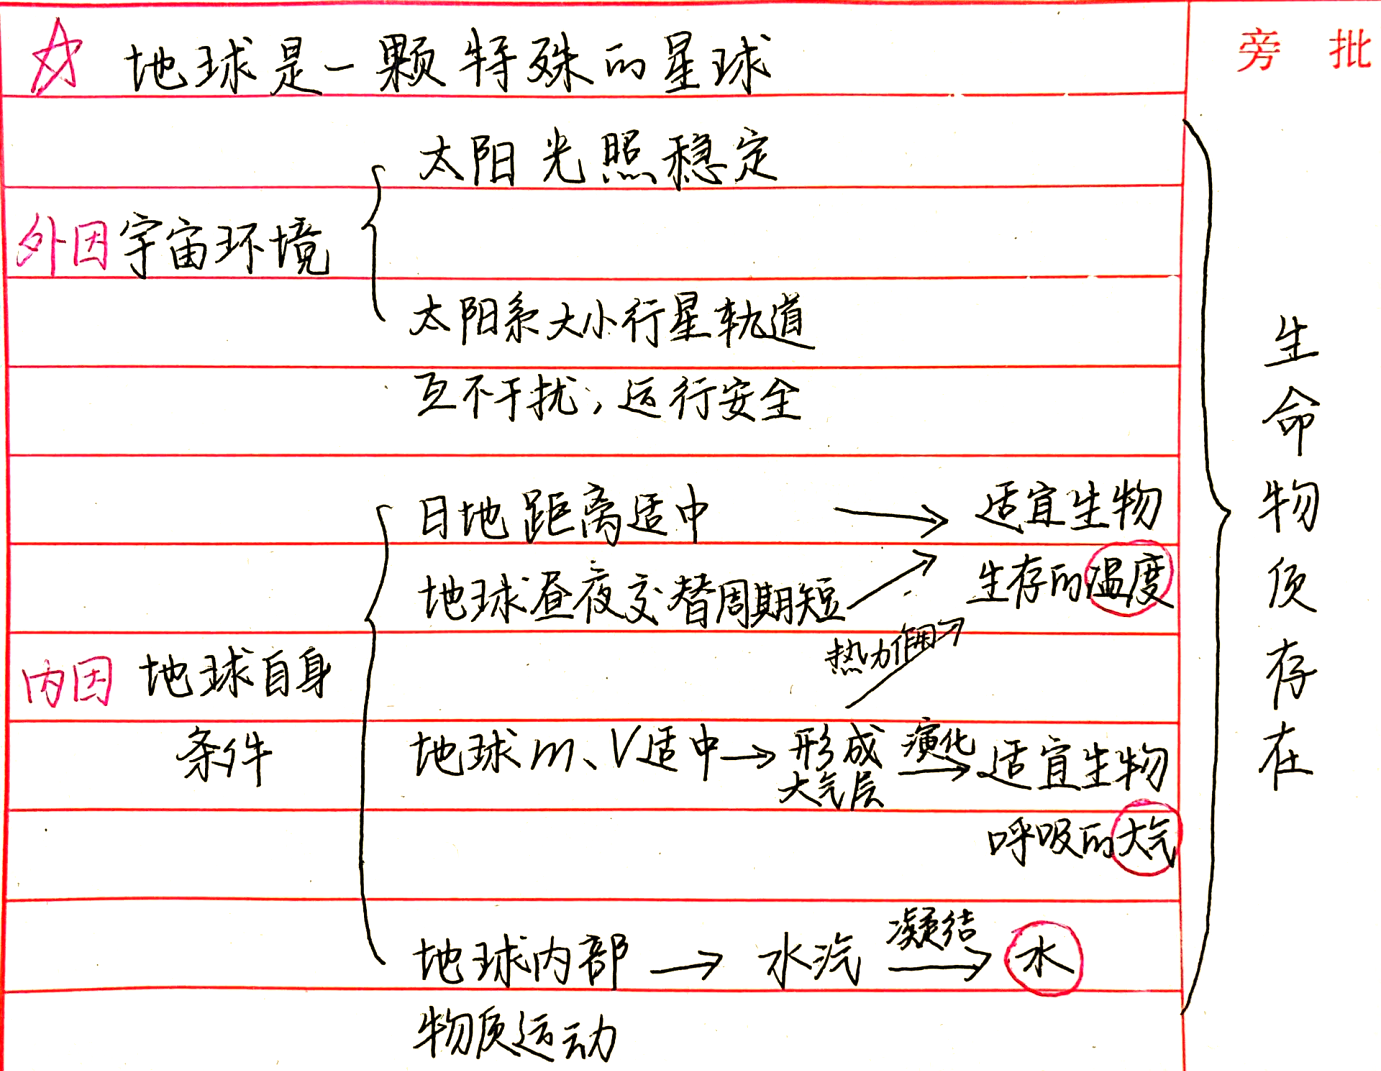 ☆ 地球是一颗特殊的星球
旁 批
太阳光照稳定
外因 宇宙环境
太阳系大小行星轨道
互不干扰,运行安全
日地距离适中 → 适宜生物
地球昼夜交替周期短 → 生存的温度
热力作用
内因 地球自身
条件
地球m、V适中 → 形成大气层 演化→ 适宜生物
呼吸的大气
地球内部 → 水汽 凝结→ 水
物质运动
生命物质存在